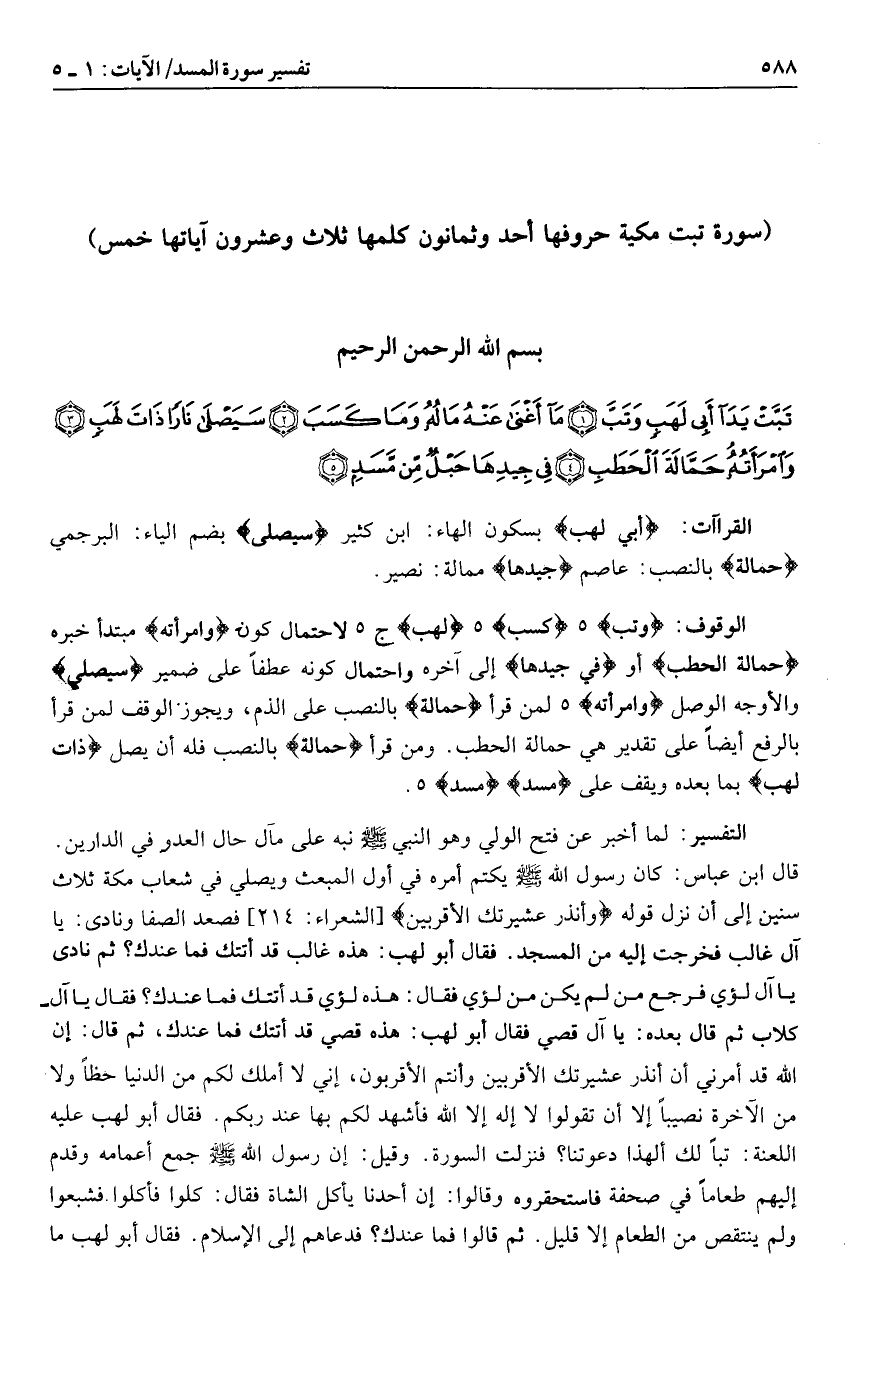 ٥٨٨ تفسير سورة المسد/ الآيات: ١ ـ ٥
(سورة تبت مكية حروفها أحد وثمانون كلمها ثلاث وعشرون آياتها خمس)
بسم الله الرحمن الرحيم
تَبَّتْ يَدَآ أَبِى لَهَبٍ وَتَبَّ ﴿١﴾ مَآ أَغْنَىٰ عَنْهُ مَالُهُۥ وَمَا كَسَبَ ﴿٢﴾ سَيَصْلَىٰ نَارًا ذَاتَ لَهَبٍ ﴿٣﴾
وَٱمْرَأَتُهُۥ حَمَّالَةَ ٱلْحَطَبِ ﴿٤﴾ فِى جِيدِهَا حَبْلٌ مِّن مَّسَدٍ ﴿٥﴾
القراآت: ﴿أبي لهب﴾ بسكون الهاء: ابن كثير ﴿سيصلى﴾ بضم الياء: البرجمي
﴿حمالة﴾ بالنصب: عاصم ﴿جيدها﴾ ممالة: نصير.
الوقوف: ﴿وتب﴾ ٥ ﴿كسب﴾ ٥ ﴿لهب﴾ ج ٥ لاحتمال كون ﴿وامرأته﴾ مبتدأ خبره
﴿حمالة الحطب﴾ أو ﴿في جيدها﴾ إلى آخره واحتمال كونه عطفاً على ضمير ﴿سيصلي﴾
والأوجه الوصل ﴿وامرأته﴾ ٥ لمن قرأ ﴿حمالة﴾ بالنصب على الذم، ويجوز الوقف لمن قرأ
بالرفع أيضاً على تقدير هي حمالة الحطب. ومن قرأ ﴿حمالة﴾ بالنصب فله أن يصل ﴿ذات
لهب﴾ بما بعده ويقف على ﴿مسد﴾ ﴿مسد﴾ ٥ .
التفسير: لما أخبر عن فتح الولي وهو النبي ﷺ نبه على مآل حال العدو في الدارين.
قال ابن عباس: كان رسول الله ﷺ يكتم أمره في أول المبعث ويصلي في شعاب مكة ثلاث
سنين إلى أن نزل قوله ﴿وأنذر عشيرتك الأقربين﴾ [الشعراء: ٢١٤] فصعد الصفا ونادى: يا
آل غالب فخرجت إليه من المسجد. فقال أبو لهب: هذه غالب قد أتتك فما عندك؟ ثم نادى
يا آل لؤي فرجع من لم يكن من لؤي فقال: هذه لؤي قد أتتك فما عندك؟ فقال يا آل
كلاب ثم قال بعده: يا آل قصي فقال أبو لهب: هذه قصي قد أتتك فما عندك، ثم قال: إن
الله قد أمرني أن أنذر عشيرتك الأقربين وأنتم الأقربون، إني لا أملك لكم من الدنيا حظاً ولا
من الآخرة نصيباً إلا أن تقولوا لا إله إلا الله فأشهد لكم بها عند ربكم. فقال أبو لهب عليه
اللعنة: تباً لك ألهذا دعوتنا؟ فنزلت السورة. وقيل: إن رسول الله ﷺ جمع أعمامه وقدم
إليهم طعاماً في صحفة فاستحقروه وقالوا: إن أحدنا يأكل الشاة فقال: كلوا فأكلوا فشبعوا
ولم ينتقص من الطعام إلا قليل. ثم قالوا فما عندك؟ فدعاهم إلى الإسلام. فقال أبو لهب ما